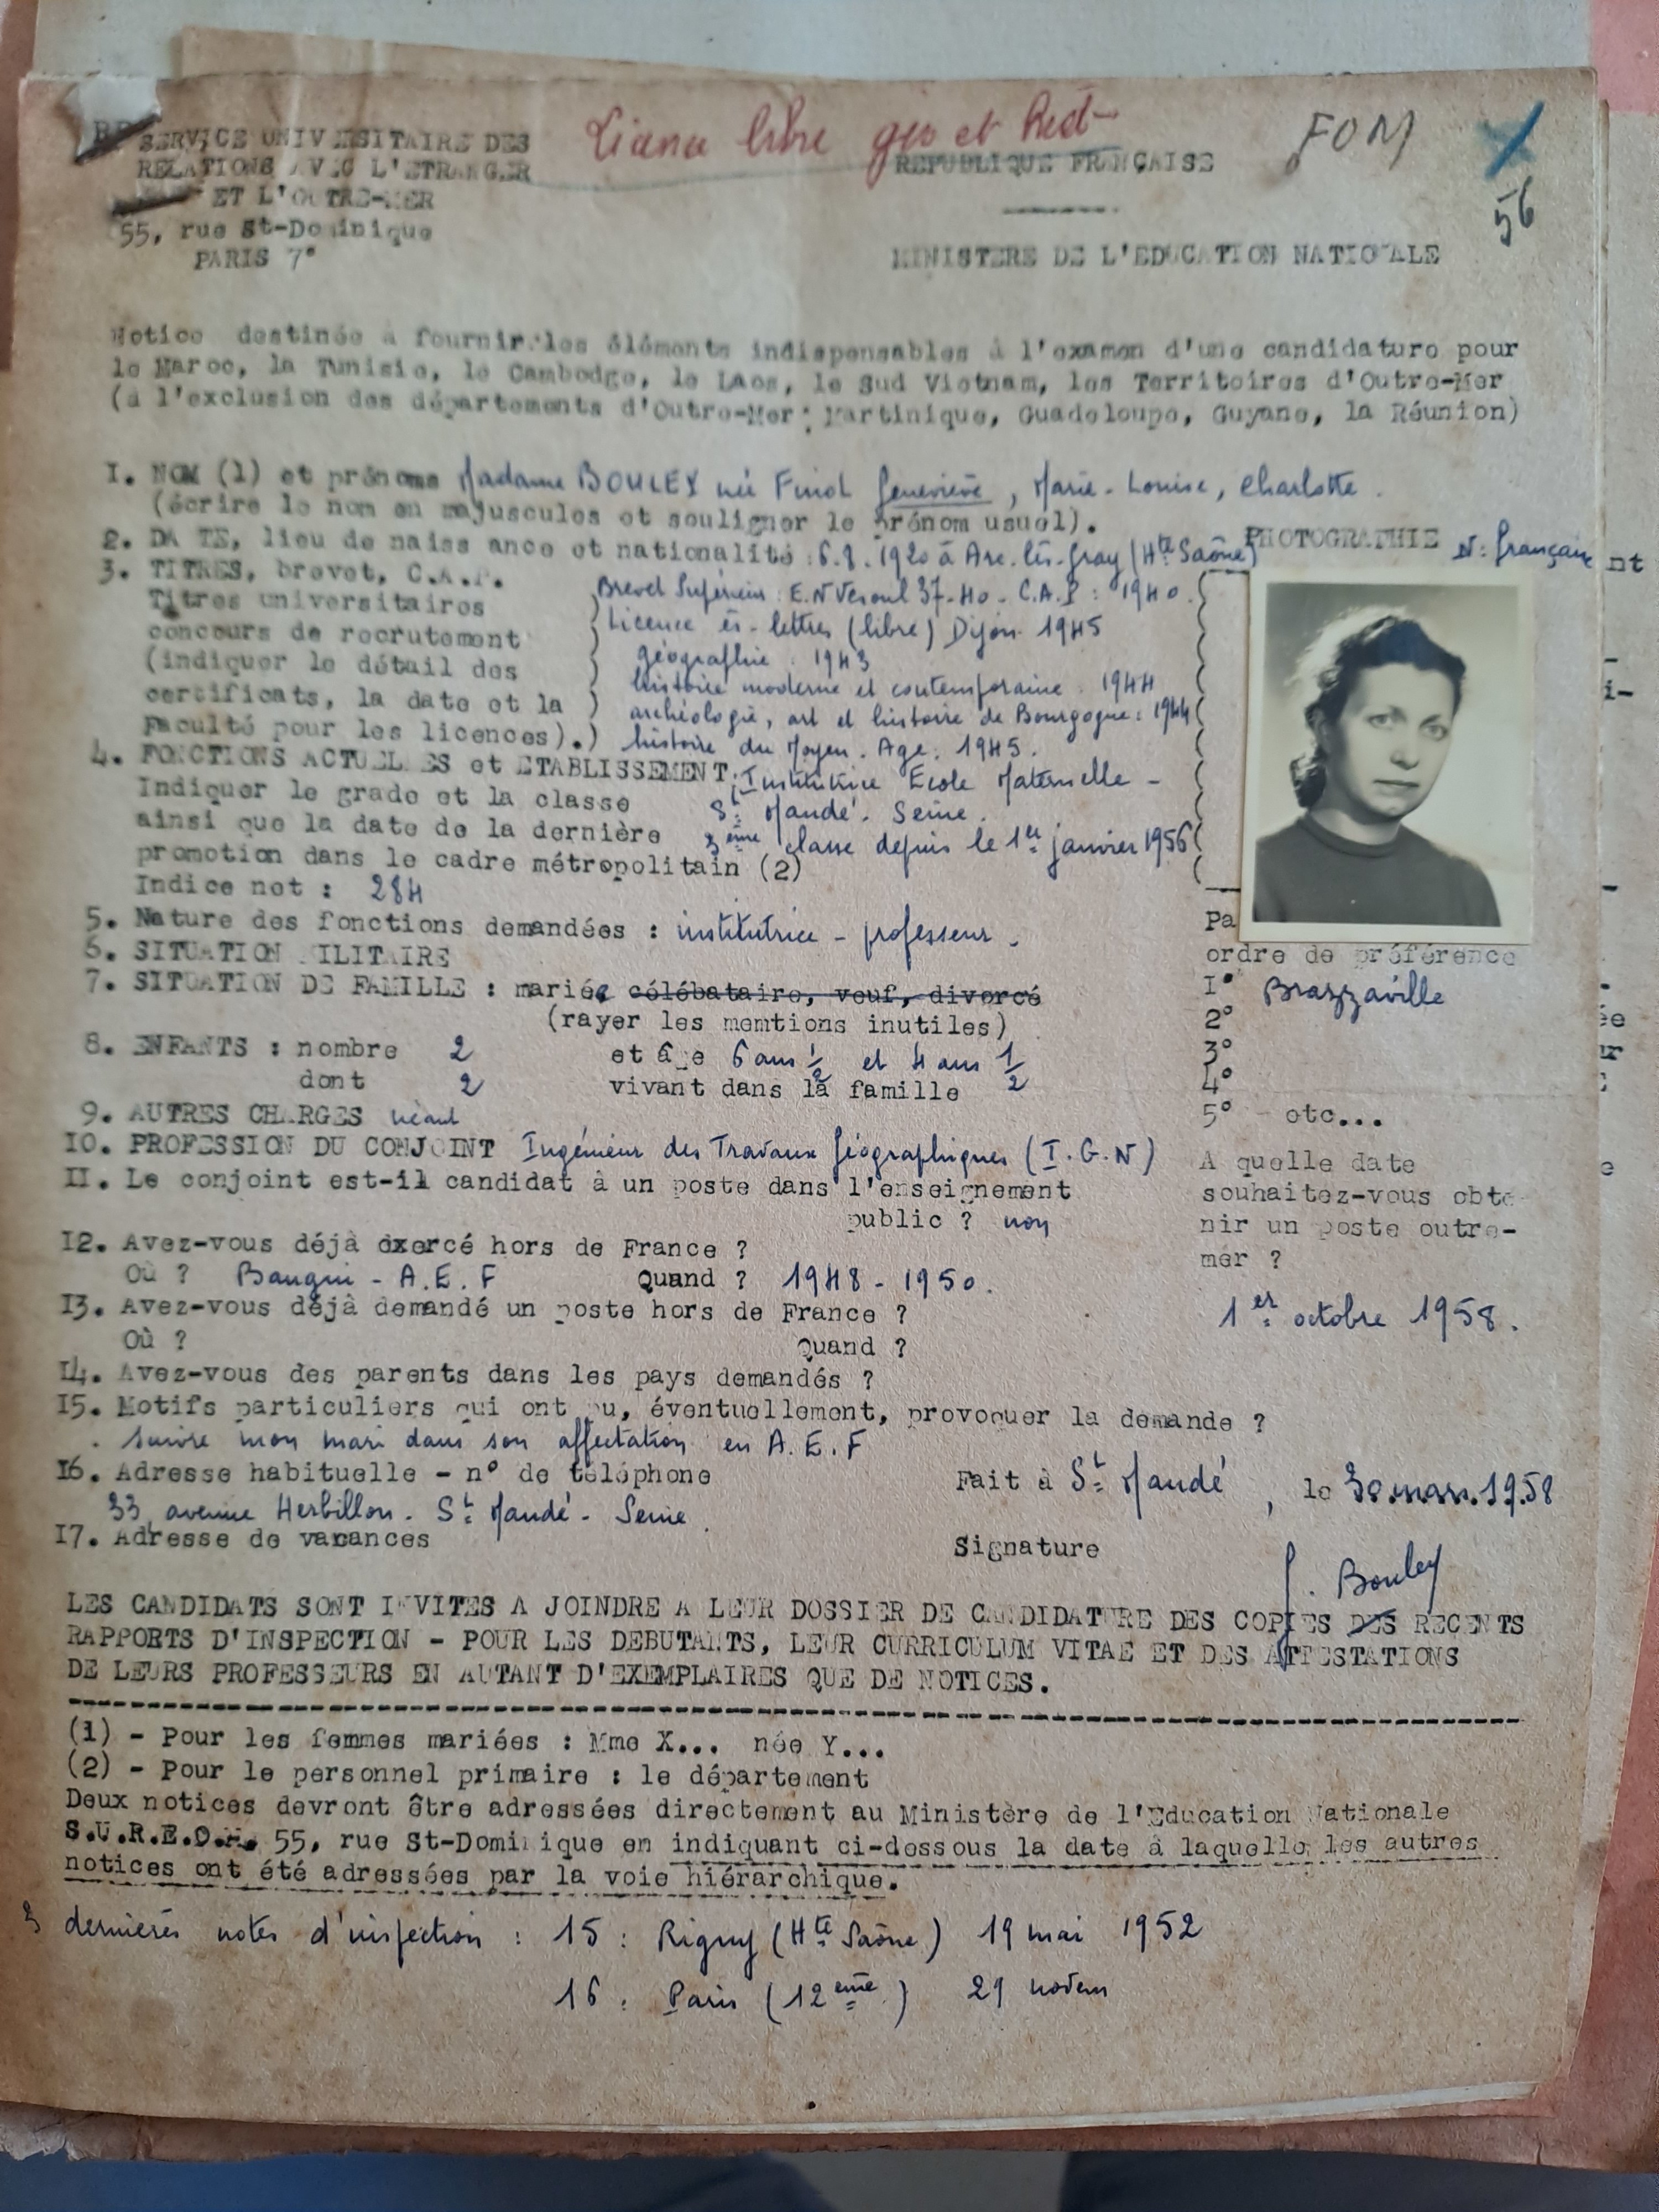 SERVICE UNIVERSITAIRE DES
RELATIONS AVEC L'ETRANGER
ET L'OUTRE-MER
55, rue St-Dominique
PARIS 7°
libre geo et Hist
REPUBLIQUE FRANÇAISE
FOM
56
MINISTERE DE L'EDUCATION NATIONALE
Notice destinée à fournir les éléments indispensables à l'examen d'une candidature pour
le Maroc, la Tunisie, le Cambodge, le Laos, le Sud Vietnam, les Territoires d'Outre-Mer
(à l'exclusion des départements d'Outre-Mer : Martinique, Guadeloupe, Guyane, la Réunion)
I. NOM (1) et prénoms Madame BOULEY née Finot Geneviève, Marie-Louise, Charlotte.
(écrire le nom en majuscules et souligner le prénom usuel).
2. DATE, lieu de naissance et nationalité : 6.8.1920 à Arc-lès-Gray (Hte Saône)
PHOTOGRAPHIE N: française
3. TITRES, brevet, C.A.P. Brevet Supérieur : E.N Vesoul 37-40 - C.A.P : 1940.
Titres universitaires ) Licence ès-lettres (libre) Dijon 1945
concours de recrutement ) géographie : 1943
(indiquer le détail des ) histoire moderne et contemporaine : 1944
certificats, la date et la ) archéologie, art et histoire de Bourgogne : 1944
Faculté pour les licences).) histoire du Moyen-Age : 1945.
4. FONCTIONS ACTUELLES et ETABLISSEMENT : Institutrice Ecole Maternelle -
Indiquer le grade et la classe St Mandé. Seine.
ainsi que la date de la dernière 3ème classe depuis le 1er janvier 1956
promotion dans le cadre métropolitain (2)
Indice net : 284
5. Nature des fonctions demandées : institutrice - professeur.
6. SITUATION MILITAIRE
7. SITUATION DE FAMILLE : mariée célébataire, veuf, divorcé
(rayer les memtions inutiles)
8. ENFANTS : nombre 2 et âge 6 ans 1/2 et 4 ans 1/2
dont 2 vivant dans la famille
9. AUTRES CHARGES néant
10. PROFESSION DU CONJOINT Ingénieur des Travaux Géographiques (I.G.N)
II. Le conjoint est-il candidat à un poste dans l'enseignement
public ? non
12. Avez-vous déjà exercé hors de France ?
Où ? Bangui - A.E.F Quand ? 1948 - 1950.
13. Avez-vous déjà demandé un poste hors de France ?
Où ? Quand ?
14. Avez-vous des parents dans les pays demandés ?
15. Motifs particuliers qui ont pu, éventuellement, provoquer la demande ?
. suivre mon mari dans son affectation en A.E.F
16. Adresse habituelle - n° de téléphone
33, avenue Herbillon. St Mandé - Seine.
17. Adresse de vacances
Pa
ordre de préférence
I° Brazzaville
2°
3°
4°
5° - etc...
A quelle date
souhaitez-vous obte
nir un poste outre-
mer ?
1er octobre 1958.
Fait à St Mandé, le 30.mars.1958
Signature
G. Bouley
LES CANDIDATS SONT INVITES A JOINDRE A LEUR DOSSIER DE CANDIDATURE DES COPIES DES RECENTS
RAPPORTS D'INSPECTION - POUR LES DEBUTANTS, LEUR CURRICULUM VITAE ET DES ATTESTATIONS
DE LEURS PROFESSEURS EN AUTANT D'EXEMPLAIRES QUE DE NOTICES.
(1) - Pour les femmes mariées : Mme X... née Y...
(2) - Pour le personnel primaire : le département
Deux notices devront être adressées directement au Ministère de l'Education Nationale
S.U.R.E.O.M. 55, rue St-Dominique en indiquant ci-dessous la date à laquelle les autres
notices ont été adressées par la voie hiérarchique.
3 dernières notes d'inspection : 15 : Rigny (Hte Saône) 19 mai 1952
16 : Paris (12ème) 29 novem